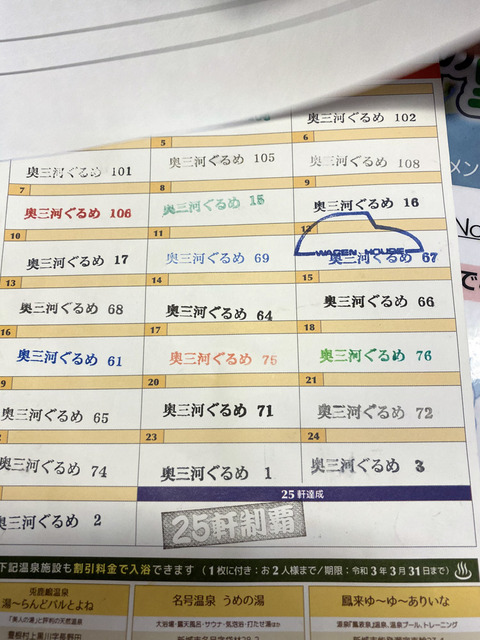 奥三河ぐるめ 102
5
6
奥三河ぐるめ 101
奥三河ぐるめ 105
奥三河ぐるめ 108
7
8
9
奥三河ぐるめ 106
奥三河ぐるめ 15
奥三河ぐるめ 16
10
11
12
WAGEN HOUSE
奥三河ぐるめ 17
奥三河ぐるめ 69
奥三河ぐるめ 67
13
14
15
奥三河ぐるめ 68
奥三河ぐるめ 64
奥三河ぐるめ 66
16
17
18
奥三河ぐるめ 61
奥三河ぐるめ 75
奥三河ぐるめ 76
9
20
21
奥三河ぐるめ 65
奥三河ぐるめ 71
奥三河ぐるめ 72
23
24
奥三河ぐるめ 74
奥三河ぐるめ 1
奥三河ぐるめ 3
25軒達成
奥三河ぐるめ 2
25軒制覇
下記温泉施設も割引料金で入浴できます(1枚に付き:お2人様まで/期限:令和3年3月31日まで)
兎鹿嶋温泉
湯〜らんどパルとよね
名号温泉 うめの湯
鳳来ゆ〜ゆ〜ありいな
「美人の湯」と評判の天然温泉
大浴場・露天風呂・サウナ・気泡浴・打たせ湯ほか
メン
No
で